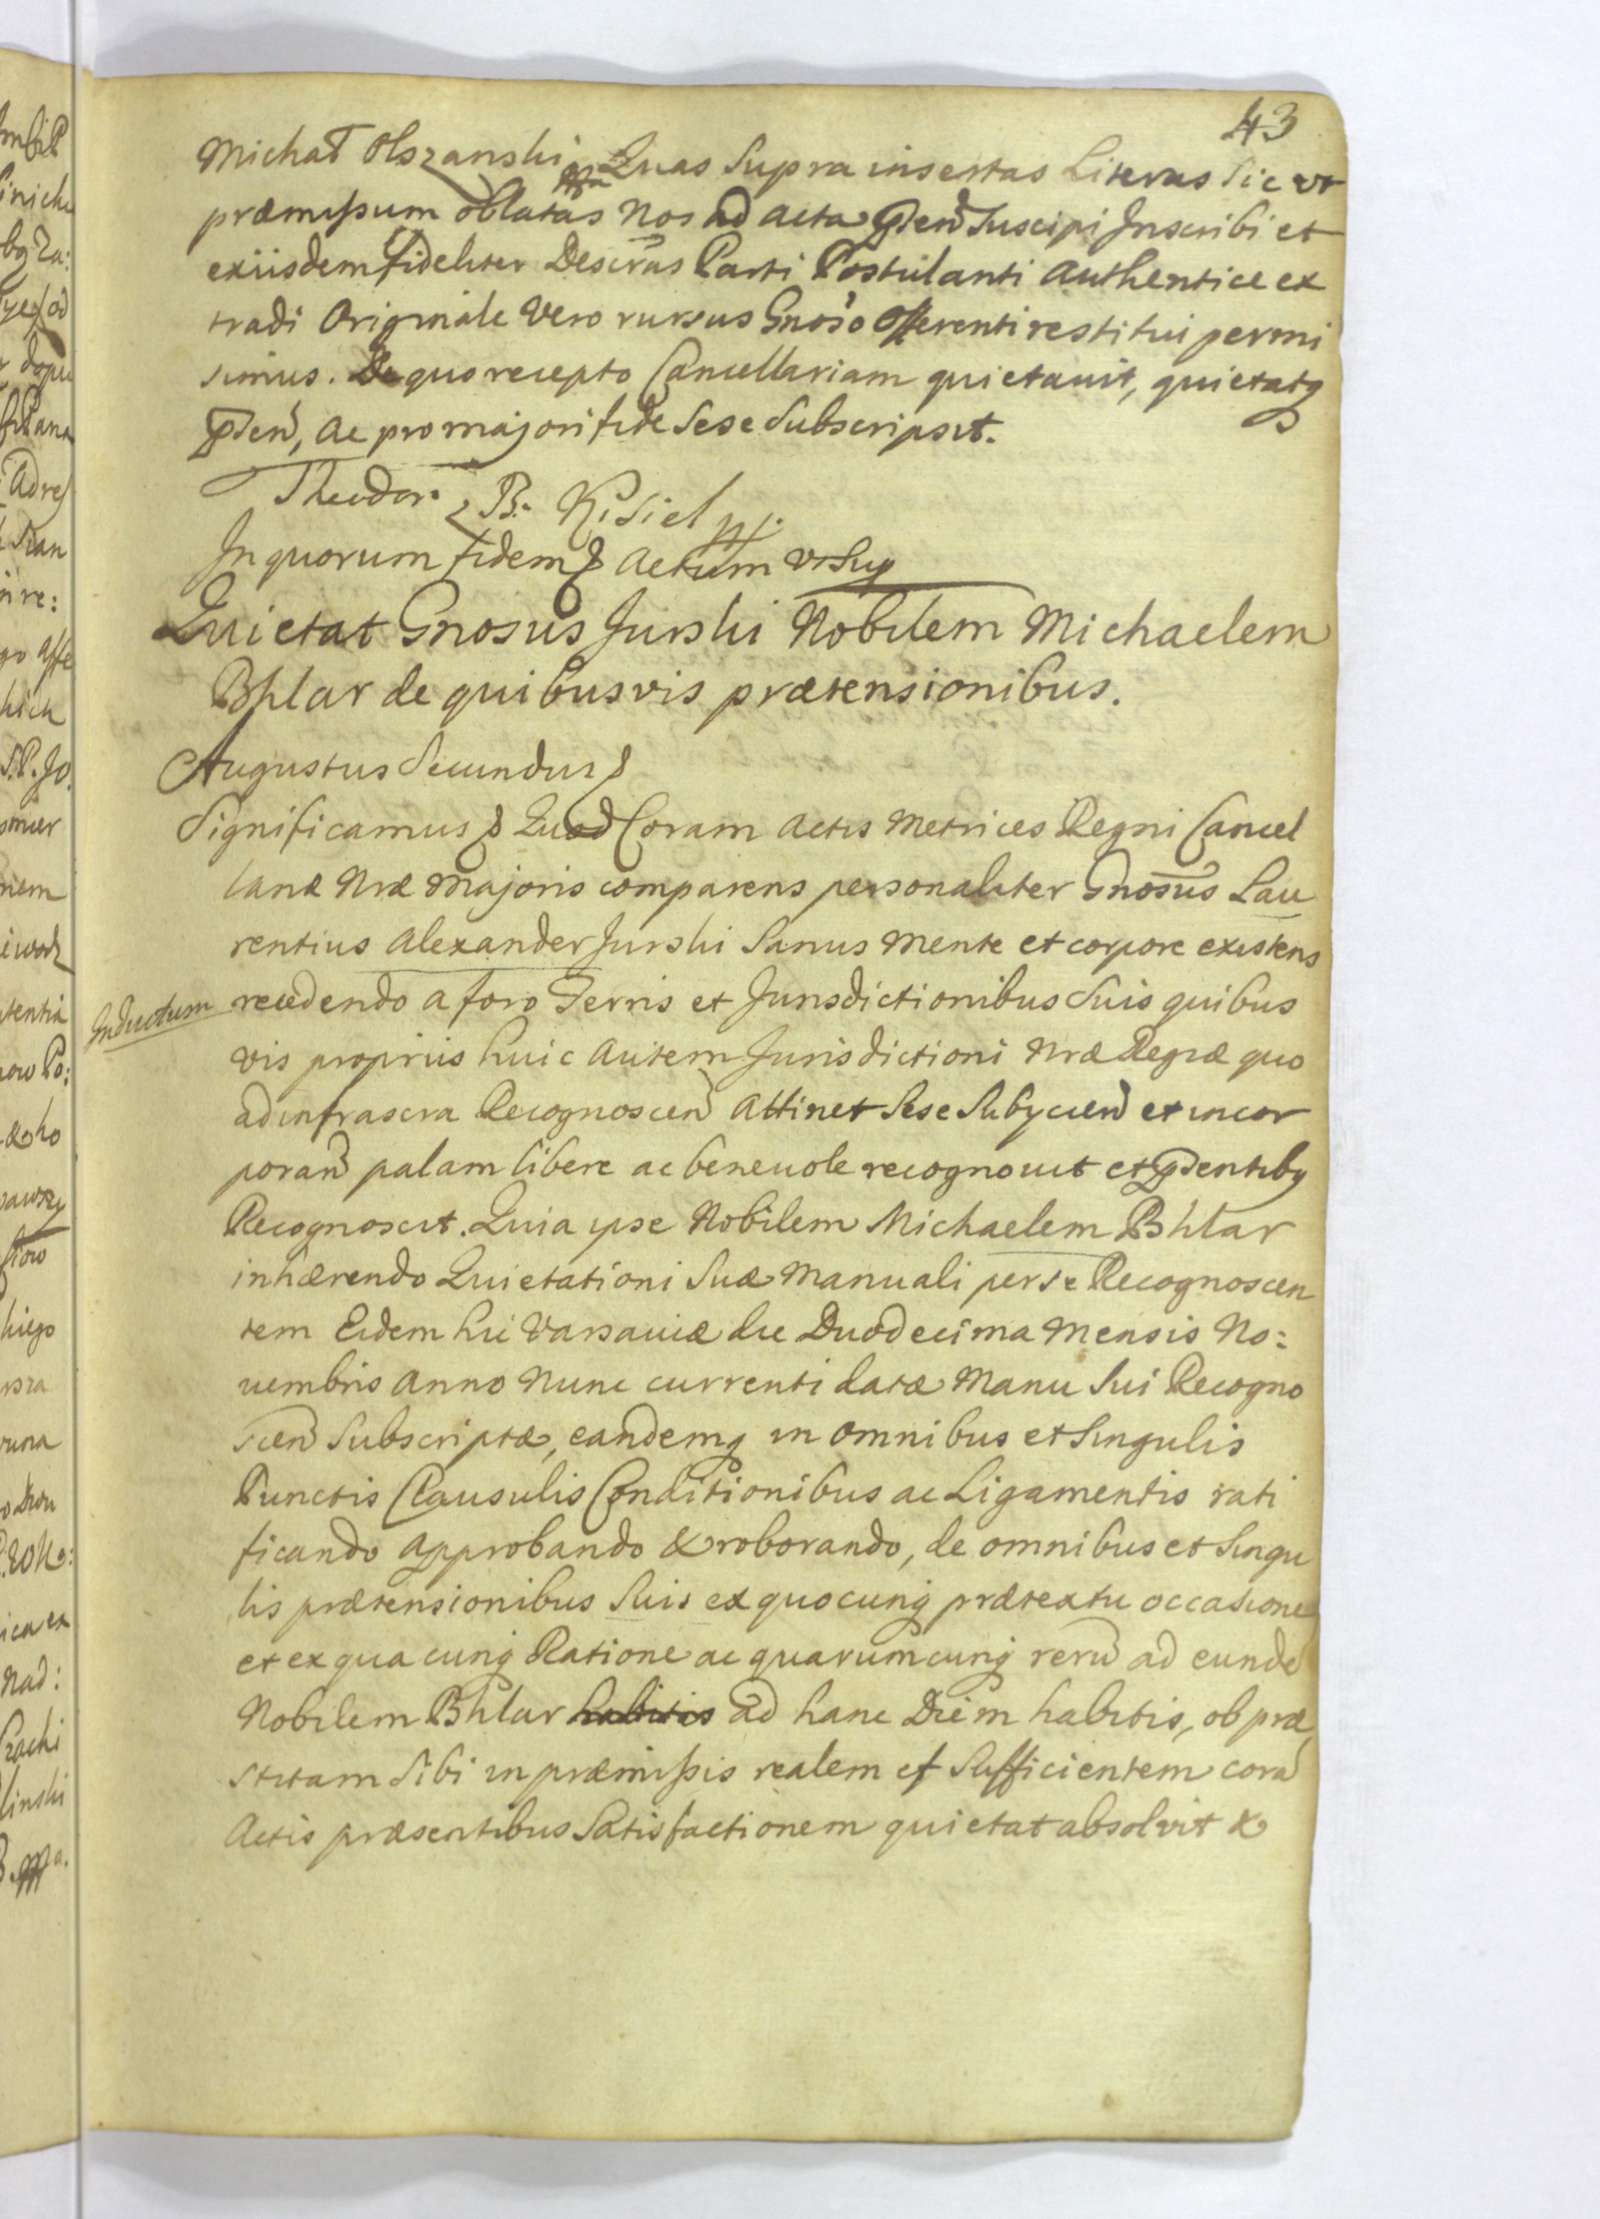 43
Michał Olszanski mpa Quas Supra insertas Literas Sic ut
præmissum oblatas Nos ad Acta pñten Suscipi Inscribi et
exiisdem fideliter Descrăs Parti Postulanti Authentice ex
tradi Originale Vero rursus Gnoso Offerenti restitui permi
simus. De quo recepto Cancellariam quietavit, quietatq
pñten, ac pro majori fide Sese Subscripsit.
Theodor B. Kisiel
In quorum fidem & Actum ut Sup
Quietat Gnosus Jurski Nobilem Michaelem
Bhlar de quibusvis prætensionibus.
Augustus Secundus &
Significamus & Quod Coram Actis Metrices Regni Cancel
lariæ Nræ Majoris comparens personaliter Gnosus Lau
rentius Alexander Jurski Sanus Mente et corpore existens
Inductum
recedendo a foro Terris et Jurisdictionibus Suis quibus
vis propriis huic Autem Jurisdictioni Nræ Regiæ quo
ad infrascra Recognoscen Attinet Sese Subycien et incor
poran palam libere ac benevole recognovit et pñtentibq
Recognoscit. Quia ipse Nobilem Michaelem Bhlar
inhærendo Quietationi Suæ Manuali per se Recognoscen
tem Eidem hic Varsaviæ die Duodecima Mensis No:
vembris Anno Nunc currenti datæ Manu Sui Recogno
scen Subscriptæ, eandemq in omnibus et Singulis
Punctis Clausulis Conditionibus ac Ligamentis rati
ficando Approbando & roborando, de omnibus et Singu
lis prætensionibus Suis ex quocunq prætextu occasione
et ex quacunq Ratione ac quarumcunq reru ad eunde
Nobilem Bhlar habitis ad hanc Diem habitis, ob præ
stitam Sibi in præmissis realem et Sufficientem cora
Actis præsentibus Satisfactionem quietat absolvit &